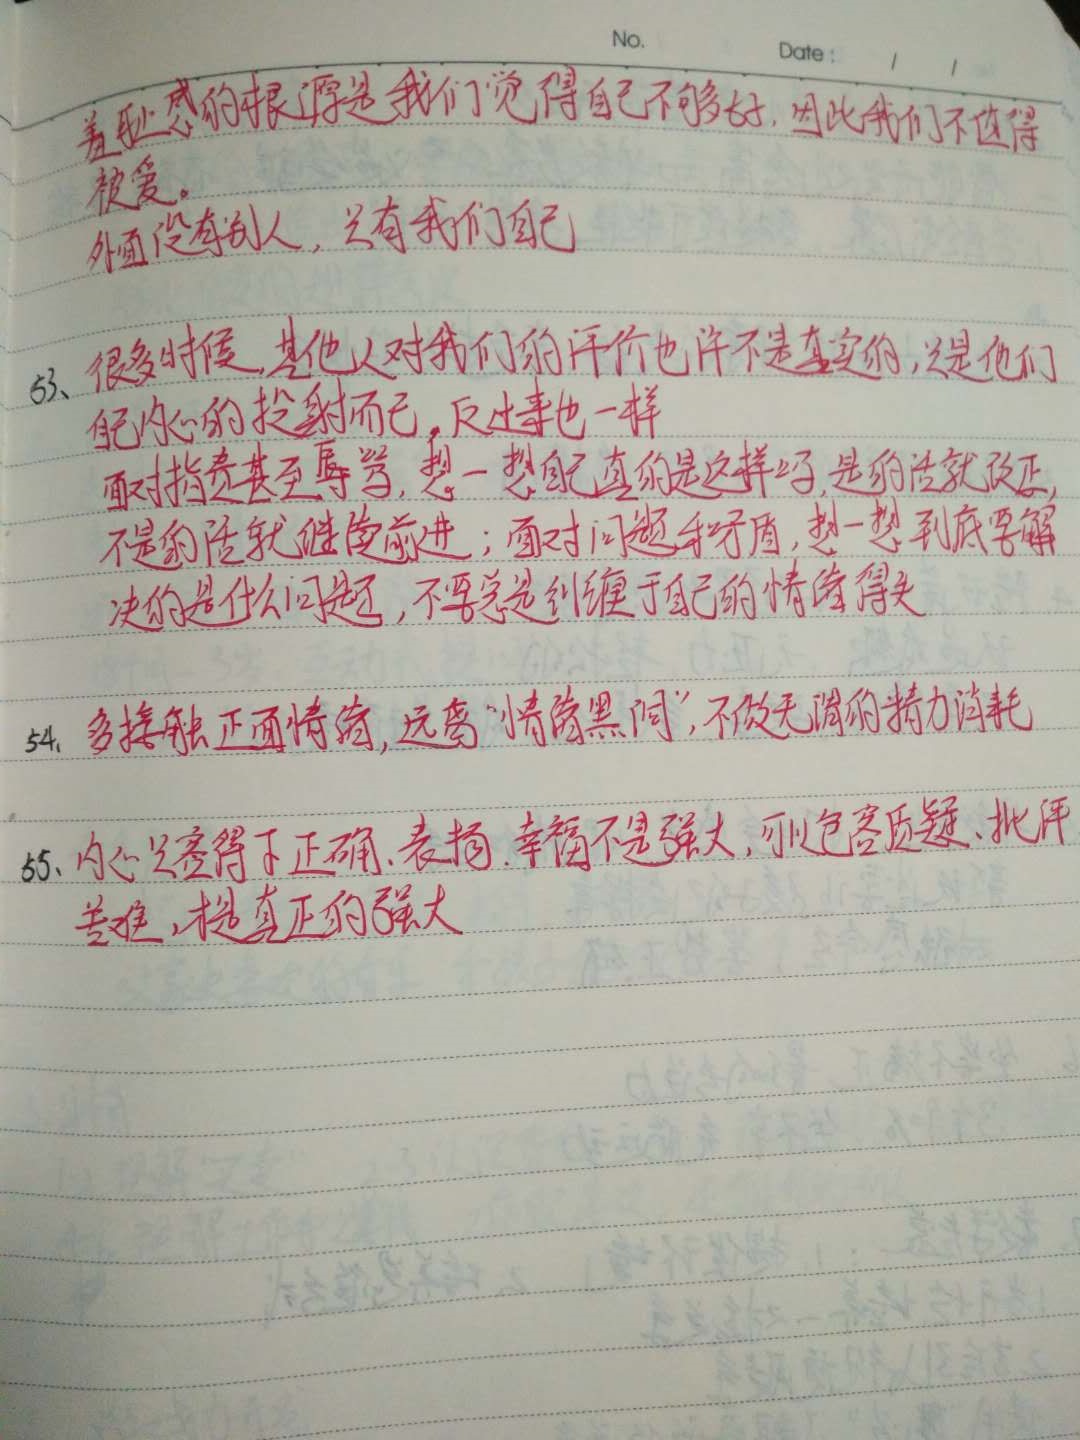 No.
Date: / /
羞耻感的根源是我们觉得自己不够好,因此我们不值得
被爱。
外面没有别人,只有我们自己
53、很多时候,其他人对我们的评价也许不是真实的,只是他们
自己内心的投射而已。反过来也一样
面对指责甚至辱骂,想一想自己真的是这样吗,是的话就改正,
不是的话就继续前进;面对问题和矛盾,想一想到底要解
决的是什么问题,不要总是纠缠于自己的情绪得失
54、多接触正面情绪,远离“情绪黑洞”,不做无谓的精力消耗
55、内心只容得下正确、表扬、幸福不是强大,可以包容质疑、批评
苦难,才是真正的强大